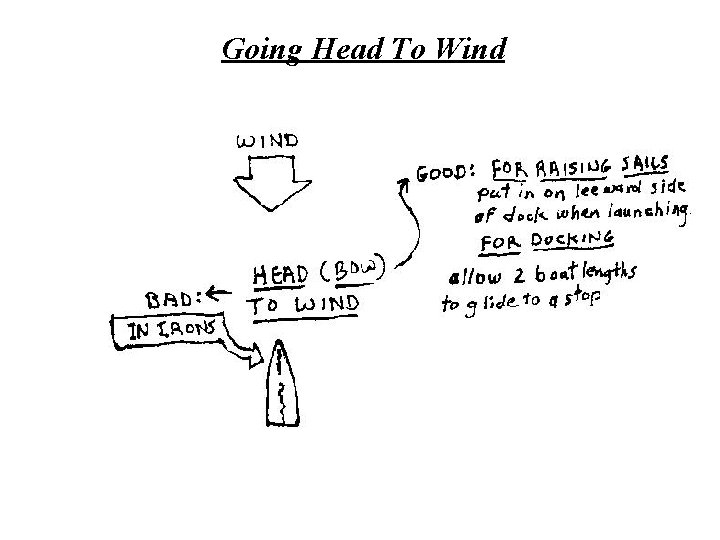 Going Head To Wind
WIND
GOOD: FOR RAISING SAILS
put in on leeward side
of dock when launching.
FOR DOCKING
allow 2 boat lengths
to glide to a stop
HEAD (BOW)
TO WIND
BAD:
IN IRONS